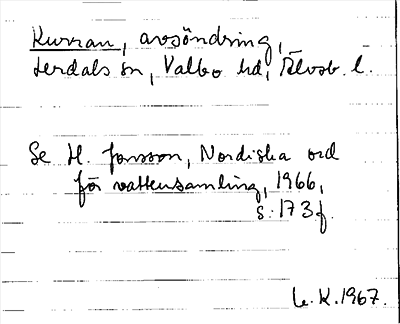 Kurran, avsöndring,
Lerdals sn, Valbo hd, Älvsb. l.
Se H. Jonsson, Nordiska ord
för vattensamling, 1966,
s. 173 f.
L. K. 1967.